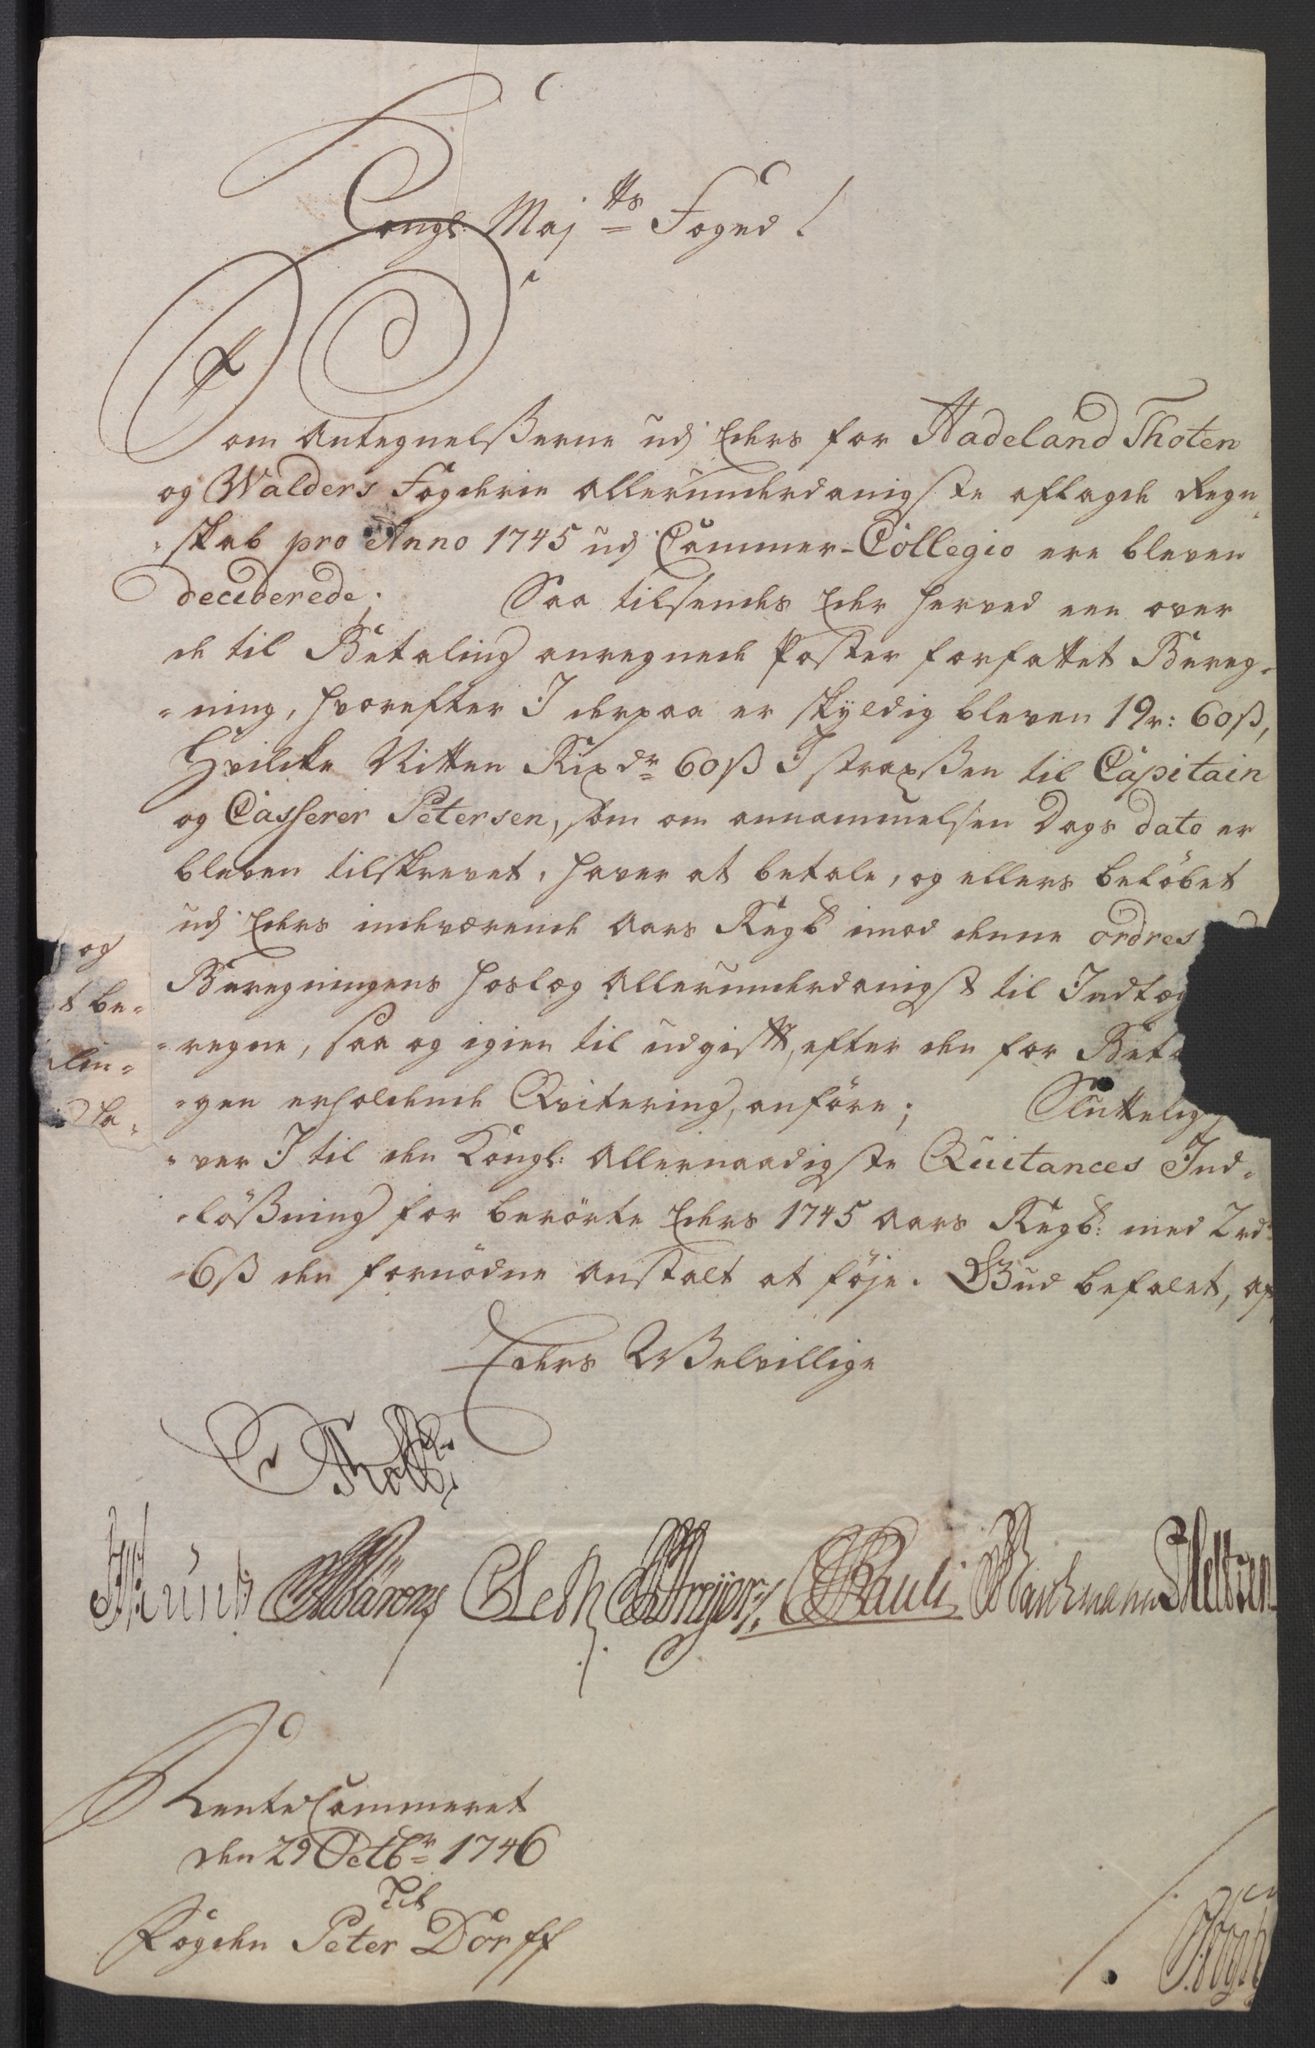 Kongl: Maj:tts Foged!
Som Antegnelßerne udj Eders for Hadeland Thoten
og Walders Fogderie allerunderdanigste aflagde Regn-
-skab pro Anno 1745 udj Cammer-Collegio ere bleven
deciderede; Saa tilsendes Eder herved een over
de til Betaling anregnede Poster forfattet Bereg-
-ning, hvorefter I derpaa er skyldig bleven 19r: 60ß,
Hvilcke Nitten Rixdr 60ß I straxßen til Capitain
og Casserer Petersen, som om annammelsen Dags dato er
bleven tilskrevet, haver at betale, og ellers beløbet
udj Eders indeværende Aars Regb imod denne ordres
Beregningens hoslæg allerunderdanigst til Indtæg
-regne, saa og igien til udgift, efter den for Beta
-gen erholdende Qvitering, anføre; Sluttelig
-ver I til den Kongl: Allernaadigste Quitances Ind-
-lößning for berörte Eders 1745 Aars Regb: med 2rd
-6ß den fornödne anstalt at föje. Gud befalet, af
Eders Velvillige
og
t be-
lin-
d ha-
Holst
Munk Bärens CLeth Dreyer Pauli Bachmann Neltzen
RenteCammeret
den 29 Octbr 1746
Til
Fogden Peter Dorff